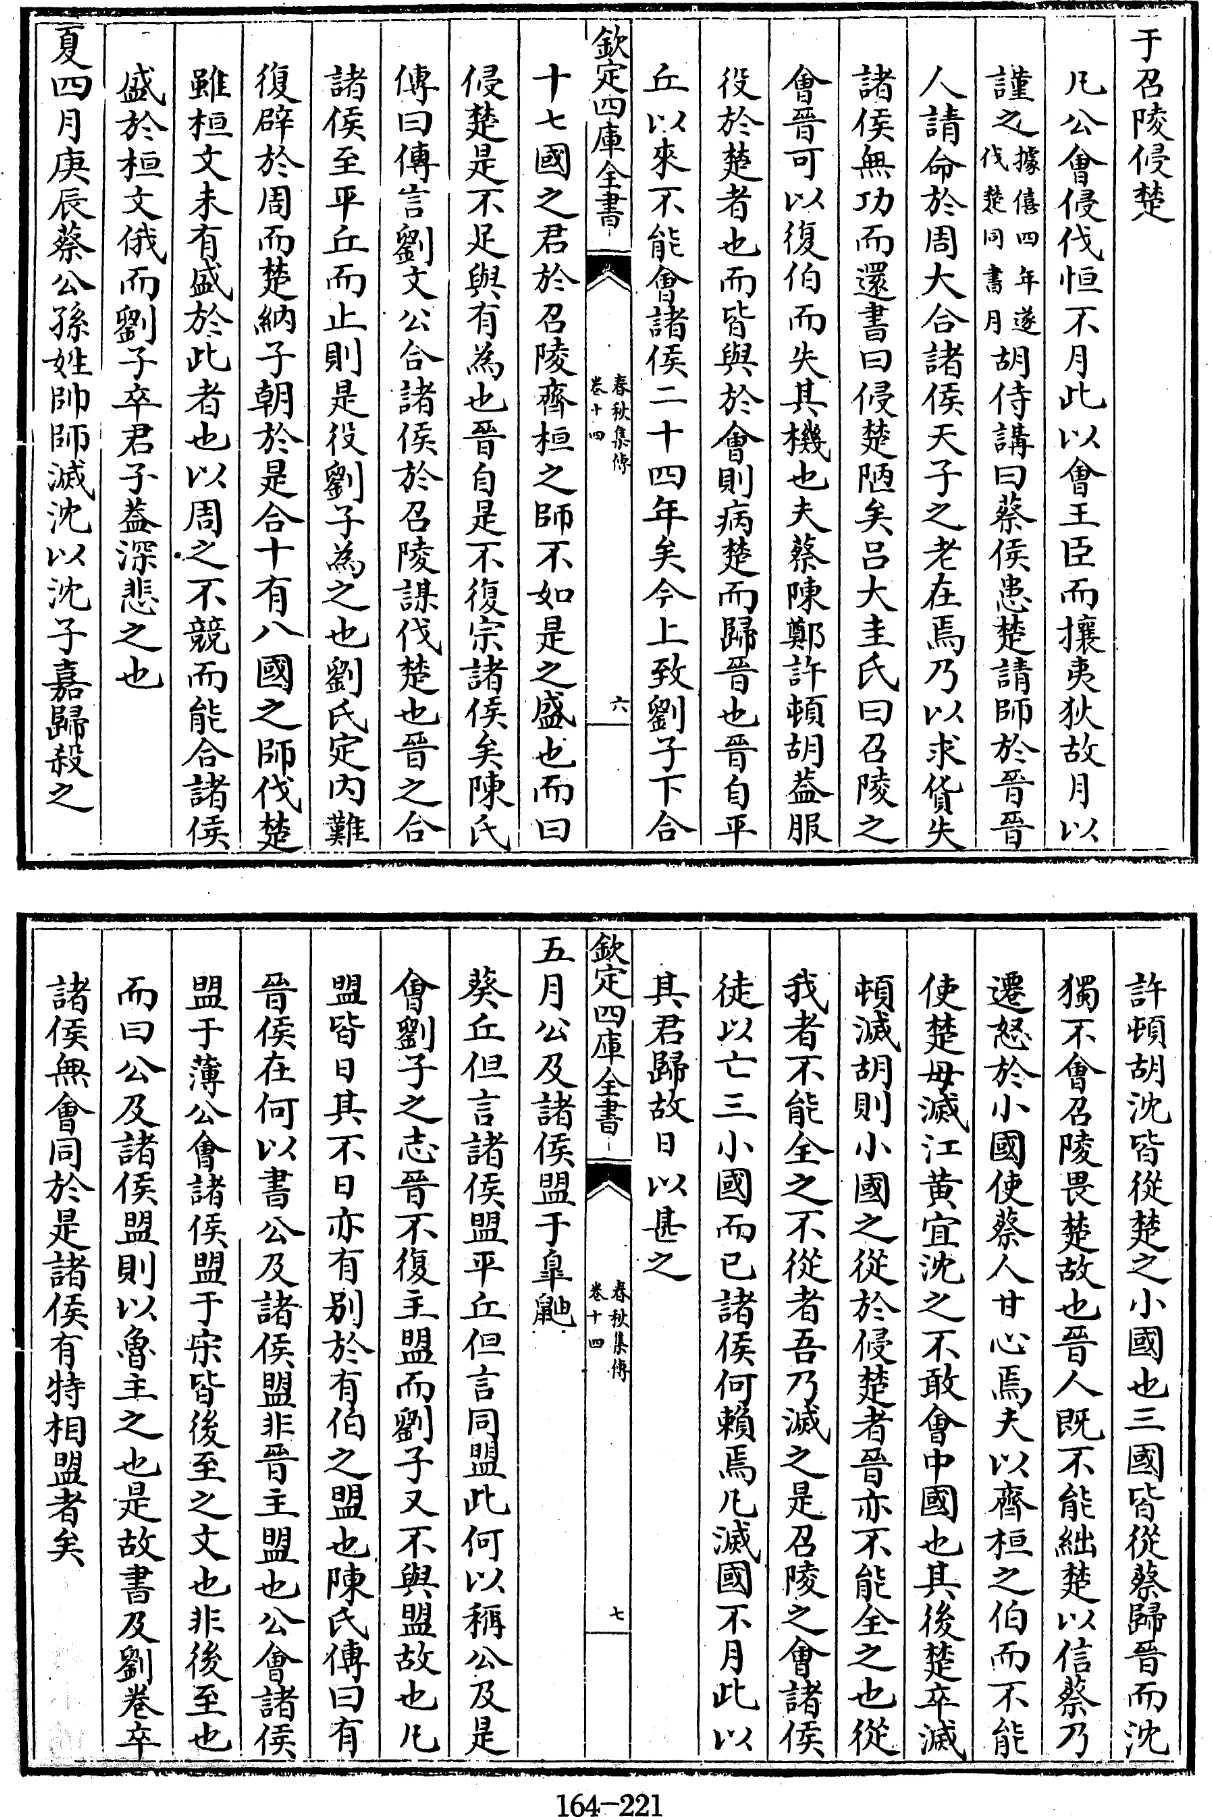 于召陵侵楚
凡公會侵伐恒不月此以會王臣而攘夷狄故月以
謹之據僖四年遂伐楚同書月胡侍講曰蔡侯患楚請師於晉晉
人請命於周大合諸侯天子之老在焉乃以求貨失
諸侯無功而還書曰侵楚陋矣吕大圭氏曰召陵之
會晉可以復伯而失其機也夫蔡陳鄭許頓胡葢服
役於楚者也而皆與於會則病楚而歸晉也晉自平
丘以來不能會諸侯二十四年矣今上致劉子下合
欽定四庫全書
春秋集傳
卷十四
六
十七國之君於召陵齊桓之師不如是之盛也而曰
侵楚是不足與有為也晉自是不復宗諸侯矣陳氏
傳曰傳言劉文公合諸侯於召陵謀伐楚也晉之合
諸侯至平丘而止則是役劉子為之也劉氏定内難
復辟於周而楚納子朝於是合十有八國之師伐楚
雖桓文未有盛於此者也以周之不競而能合諸侯
盛於桓文俄而劉子卒君子葢深悲之也
夏四月庚辰蔡公孫姓帥師滅沈以沈子嘉歸殺之
許頓胡沈皆從楚之小國也三國皆從蔡歸晉而沈
獨不會召陵畏楚故也晉人既不能絀楚以信蔡乃
遷怒於小國使蔡人甘心焉夫以齊桓之伯而不能
使楚毋滅江黄宜沈之不敢會中國也其後楚卒滅
頓滅胡則小國之從於侵楚者晉亦不能全之也從
我者不能全之不從者吾乃滅之是召陵之會諸侯
徒以亡三小國而已諸侯何賴焉凡滅國不月此以
其君歸故日以甚之
欽定四庫全書
春秋集傳
卷十四
七
五月公及諸侯盟于皐鼬
葵丘但言諸侯盟平丘但言同盟此何以稱公及是
會劉子之志晉不復主盟而劉子又不與盟故也凡
盟皆日其不日亦有别於有伯之盟也陳氏傳曰有
晉侯在何以書公及諸侯盟非晉主盟也公會諸侯
盟于薄公會諸侯盟于宋皆後至之文也非後至也
而曰公及諸侯盟則以魯主之也是故書及劉卷卒
諸侯無會同於是諸侯有特相盟者矣
164-221